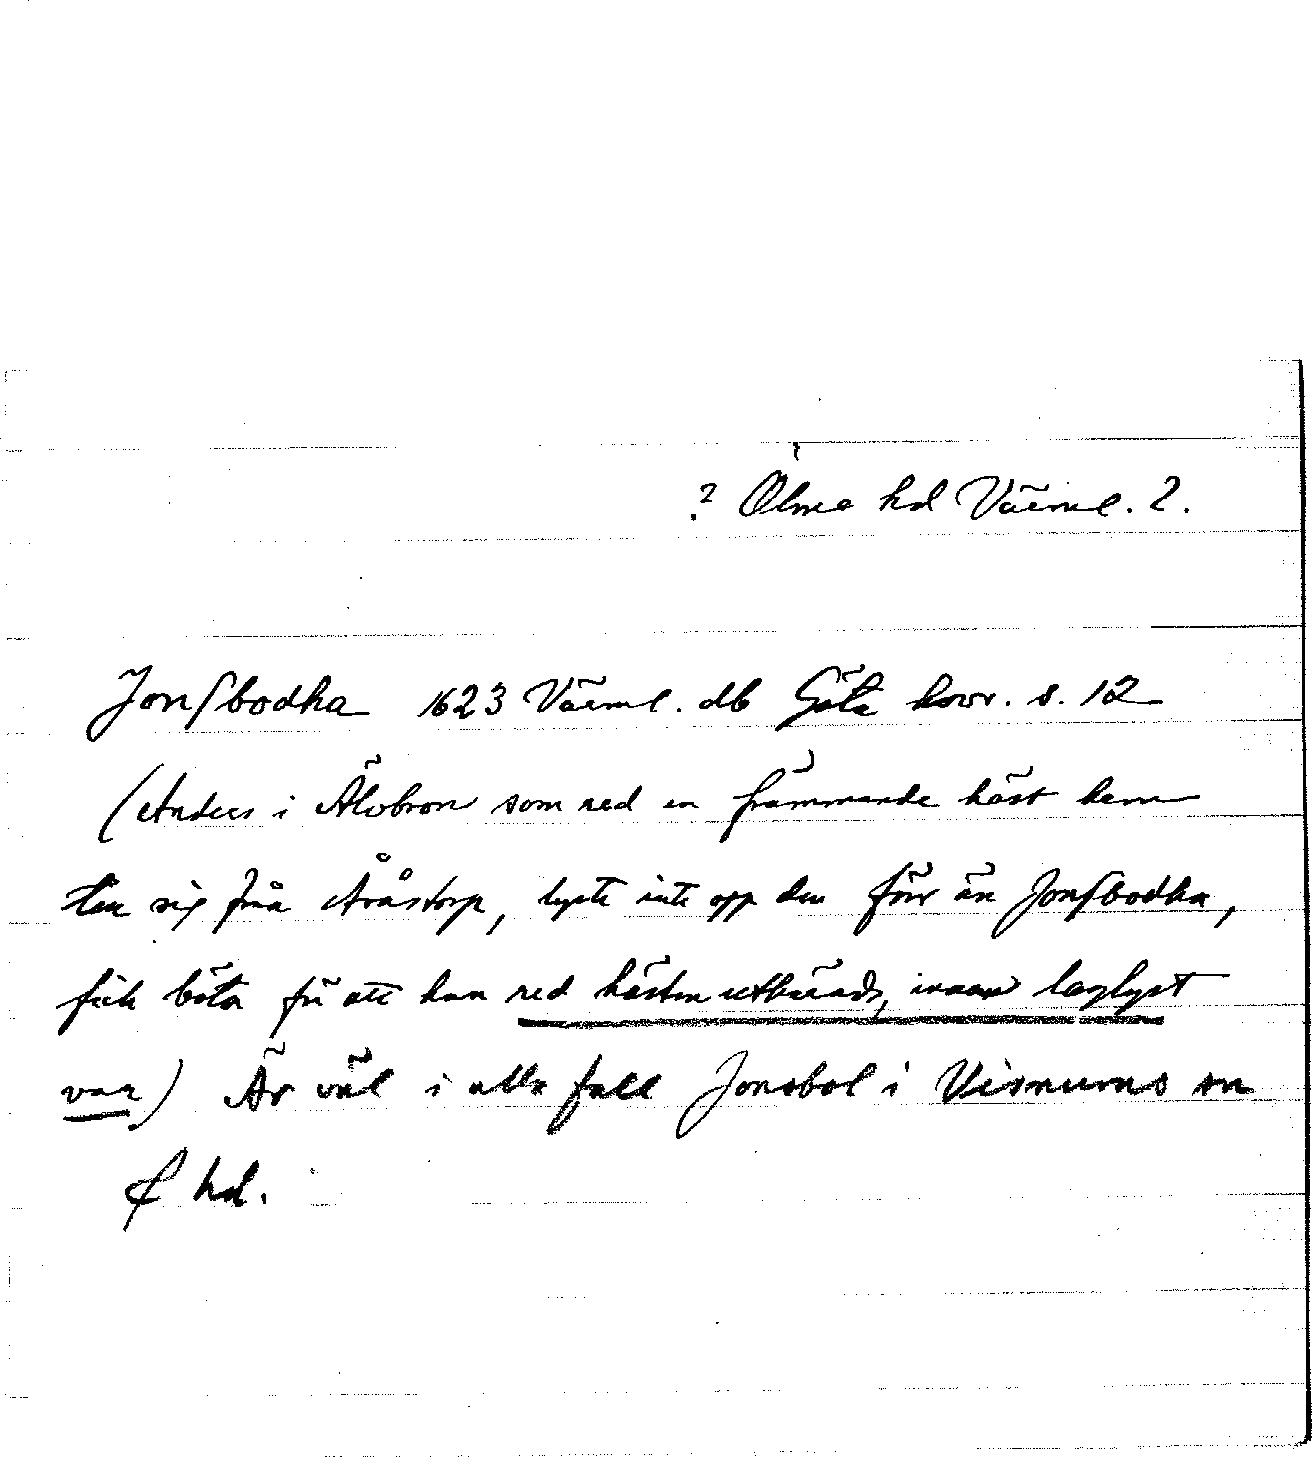 ? Ölme hd Värml. ?.
Jonſbodha 1623 Värml. db Göta hovr. s. 12
(Anders i Älvbron som red en främmande häst hem
till sig från Aråstorp, lyste inte opp den förr än Jonſbodha,
fick böta för att han red hästen utbärads, innan laglyst
var) Är väl i alla fall Jonsbol i Visnums sn
& hd.